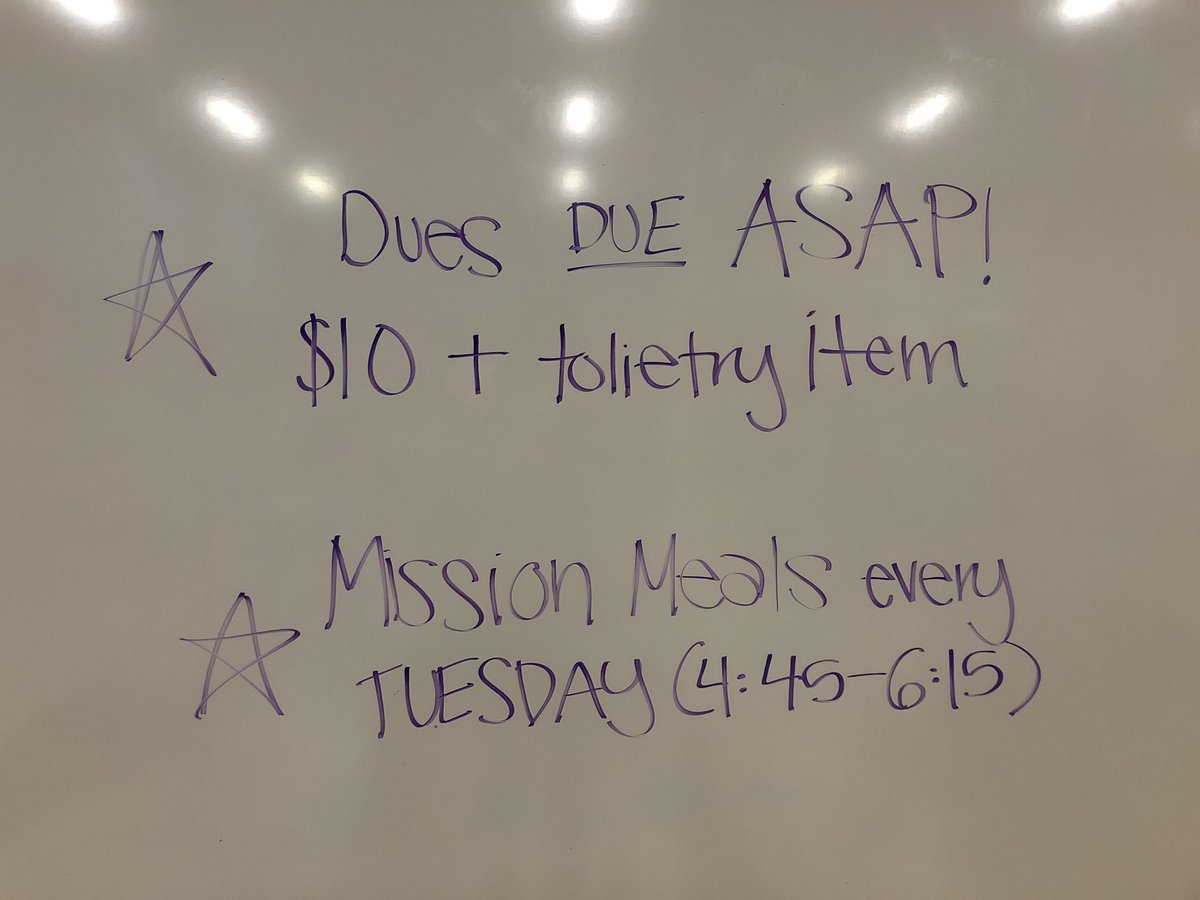 Dues DUE ASAP!
$10 + tolietry item
Mission Meals every
TUESDAY (4:45-6:15)